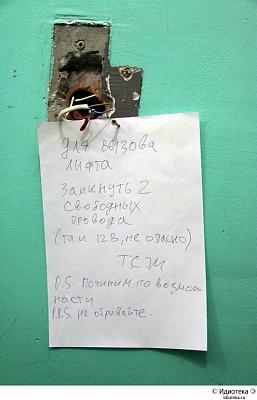 Для вызова
лифта
замкнуть 2
свободных
провода
(там 12В, не опасно)
ТСЖ
P.S Починим по возмож
ности
P.P.S не обрывайте
© Идиотека
idioteka.ru